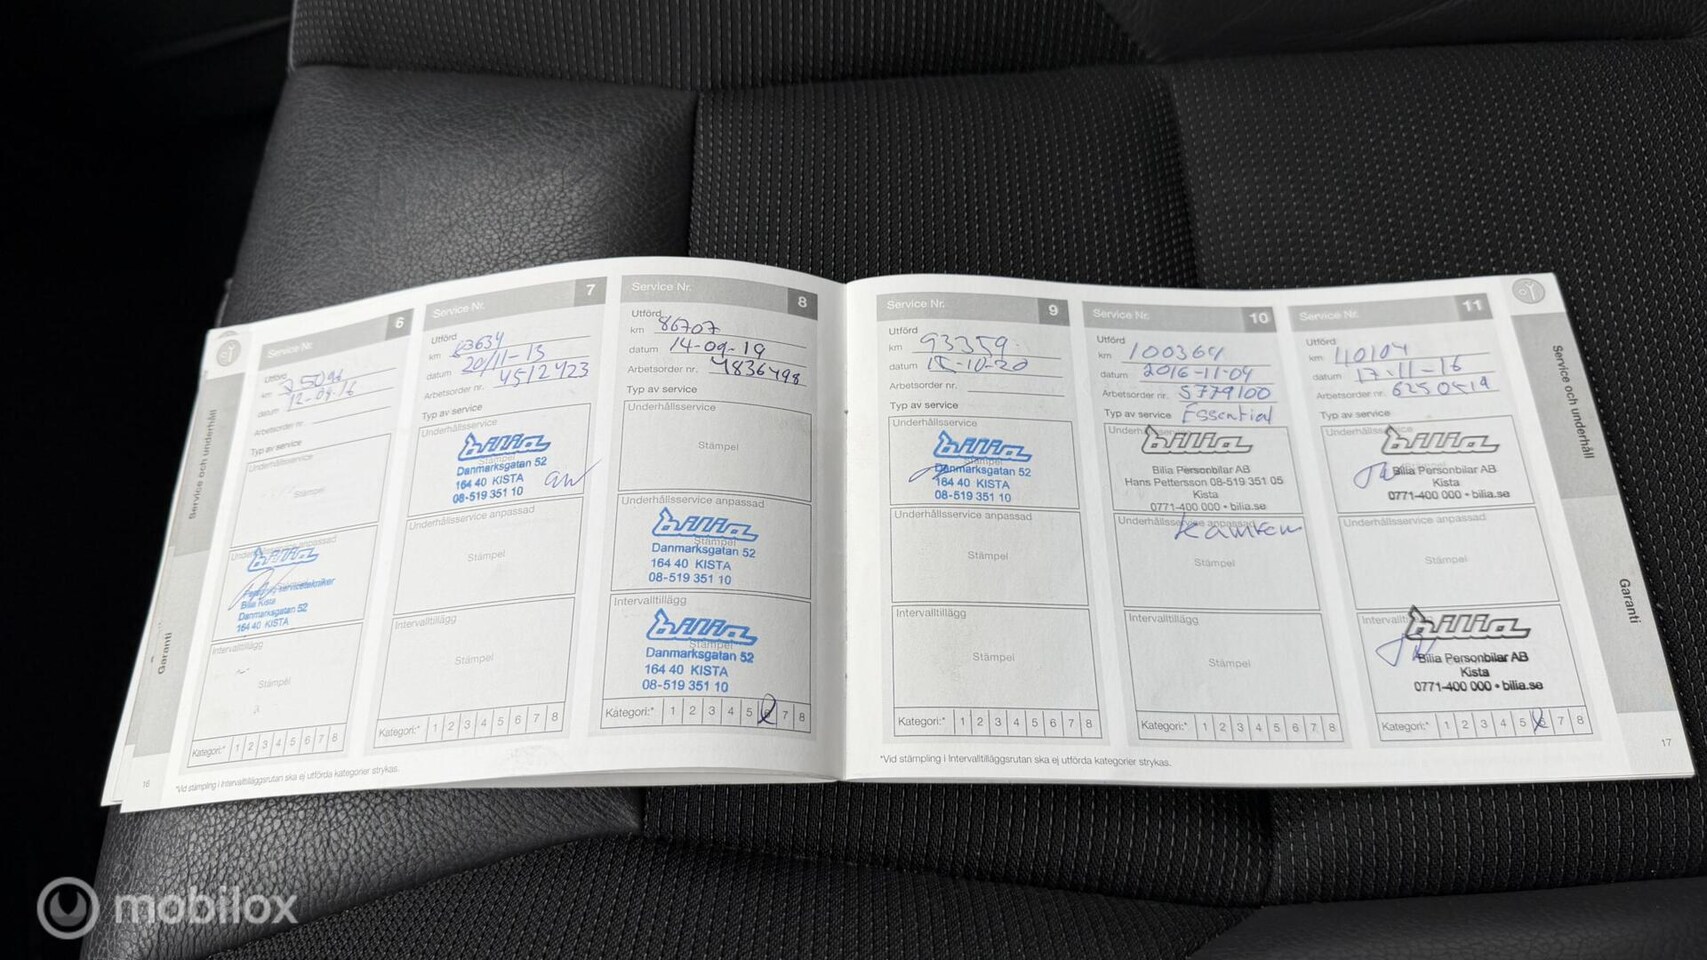 Service Nr. 6
Utförd
km
datum 12-09-16
Arbetsorder nr.
Typ av service
Underhållsservice
Stämpel
Underhållsservice anpassad
bilia
servicetekniker
Bilia Kista
Danmarksgatan 52
164 40 KISTA
Intervalltillägg
Stämpel
Kategori:* 1 2 3 4 5 6 7 8
Service Nr. 7
Utförd
km 83634
datum 20/11-13
Arbetsorder nr. 4512423
Typ av service
Underhållsservice
bilia
Stämpel
Danmarksgatan 52
164 40 KISTA
08-519 351 10
Underhållsservice anpassad
Stämpel
Intervalltillägg
Stämpel
Kategori:* 1 2 3 4 5 6 7 8
Service Nr. 8
Utförd
km 86707
datum 14-09-19
Arbetsorder nr. 4836498
Typ av service
Underhållsservice
Stämpel
Underhållsservice anpassad
bilia
Stämpel
Danmarksgatan 52
164 40 KISTA
08-519 351 10
Intervalltillägg
bilia
Stämpel
Danmarksgatan 52
164 40 KISTA
08-519 351 10
Kategori:* 1 2 3 4 5 6 7 8
Service och underhåll
Garanti
16
*Vid stämpling i Intervalltilläggsrutan ska ej utförda kategorier strykas.
Service Nr. 9
Utförd
km 93359
datum 15-10-20
Arbetsorder nr.
Typ av service
Underhållsservice
bilia
Stämpel
Danmarksgatan 52
164 40 KISTA
08-519 351 10
Underhållsservice anpassad
Stämpel
Intervalltillägg
Stämpel
Kategori:* 1 2 3 4 5 6 7 8
Service Nr. 10
Utförd
km 100364
datum 2016-11-04
Arbetsorder nr. 5779100
Typ av service Essential
bilia
Bilia Personbilar AB
Hans Pettersson 08-519 351 05
Kista
0771-400 000 • bilia.se
Underhållsservice anpassad
Stämpel
Intervalltillägg
Stämpel
Kategori:* 1 2 3 4 5 6 7 8
Service Nr. 11
Utförd
km 110104
datum 17-11-16
Arbetsorder nr. 6250519
Typ av service
Underhållsservice
bilia
Bilia Personbilar AB
Kista
0771-400 000 • bilia.se
Underhållsservice anpassad
Stämpel
Intervalltillägg
bilia
Bilia Personbilar AB
Kista
0771-400 000 • bilia.se
Kategori:* 1 2 3 4 5 6 7 8
*Vid stämpling i Intervalltilläggsrutan ska ej utförda kategorier strykas.
Service och underhåll
Garanti
17
mobilox